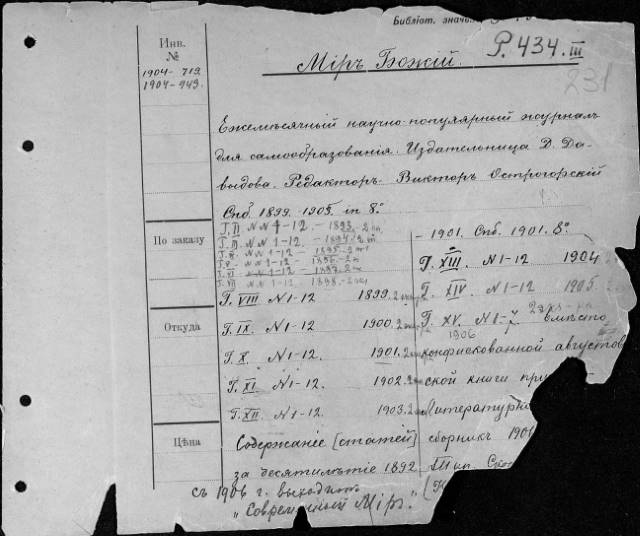 Библіот. значо
Инв.
№
1904-719.
1904-943.
Р. 434. III
Міръ Божій.
231
Ежемѣсячный научно-популярный журналъ
для самообразованія. Издательница Д. Да-
выдова. Редакторъ Викторъ Острогорскій
Спб. 1899. 1905. in 8°
По заказу
Г. II №№ 1-12. - 1893.
Г. III. №№ 1-12. - 1894.
Г. IV. №№ 1-12. - 1895.
Г. V. №№ 1-12. - 1896.
Г. VI №№ 1-12. - 1897.
Г. VII №№ 1-12. 1898.
Г. VIII №1-12 1899.
Откуда
Г. IX. №1-12 1900.
Г. X. №1-12 1901.
Г. XI №1-12. 1902.
Г. XII. №1-12. 1903.
- 1901. Спб. 1901. 8°
Г. XIII. №1-12 1904
Г. XIV №1-12 1905
Г. XV №1-7 вмѣсто
1906.
конфискованной августов
ской книги
Литературн
сборникъ
Цѣна
Содержаніе [статей]
за десятилѣтіе 1892
съ 1906 г. выходитъ
"Современный Міръ".